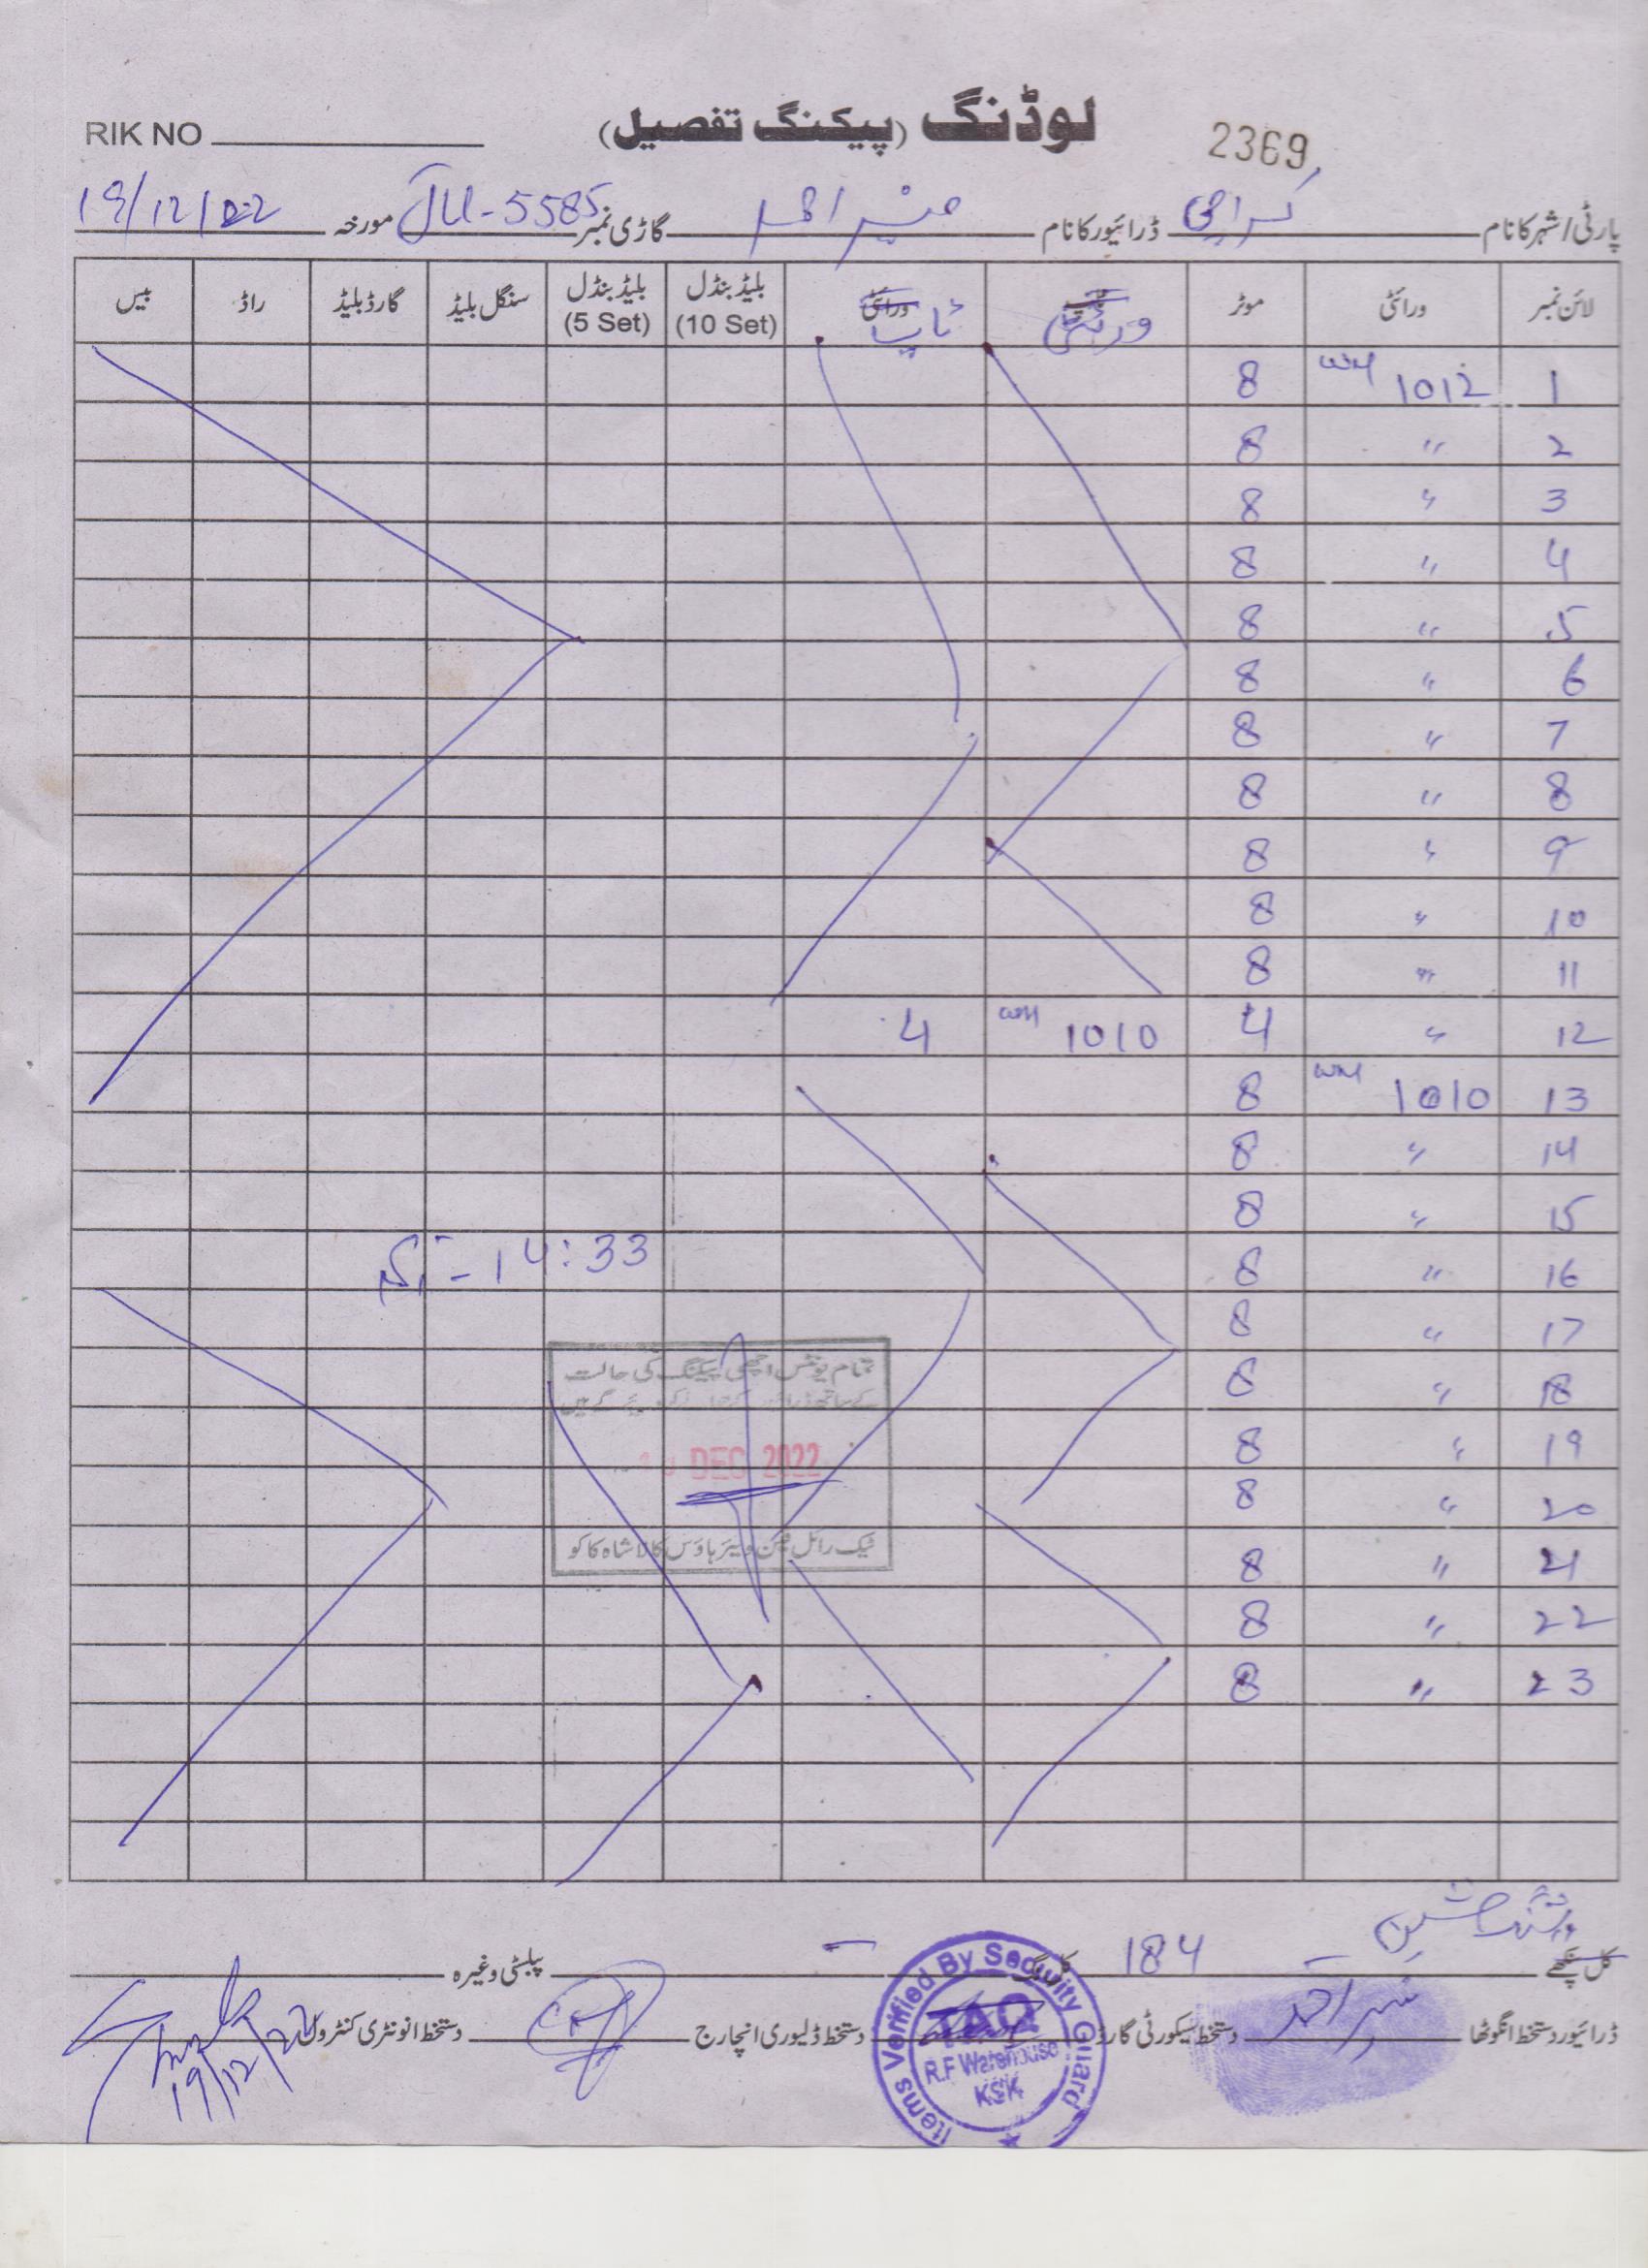 RIK NO
لوڈنگ (پیکنگ تفصیل)
2369
پارٹی/شہر کا نام کراچی ڈرائیور کا نام منیر احمد گاڑی نمبر JU-5585 مورخہ 19/12/22
لائن نمبر ورائٹی موٹر ورائٹی ٹاپ بلیڈ بنڈل (10 Set) بلیڈ بنڈل (5 Set) سنگل بلیڈ گارڈ بلیڈ راڈ بیس
1 WM 1012 8
2 〃 8
3 〃 8
4 〃 8
5 〃 8
6 〃 8
7 〃 8
8 〃 8
9 〃 8
10 〃 8
11 〃 8
12 〃 4 WM 1010 4
13 WM 1010 8
14 〃 8
15 〃 8
16 〃 8
14:33
17 〃 8
18 〃 8
19 〃 8
20 〃 8
21 〃 8
22 〃 8
23 〃 8
تمام یونٹس اچھی پیکنگ کی حالت
کے ساتھ
DEC 2022
ٹیک رائل فین ویئر ہاؤس کالا شاہ کاکو
واشنگ مشین
کل پنکھے 184 پبلسٹی وغیرہ
ڈرائیور دستخط انگوٹھا منیر احمد دستخط سیکورٹی گارڈ دستخط ڈلیوری انچارج دستخط انونٹری کنٹرولر
19/12/22
Items Verified By Security Guard
R.F Warehouse
KSK